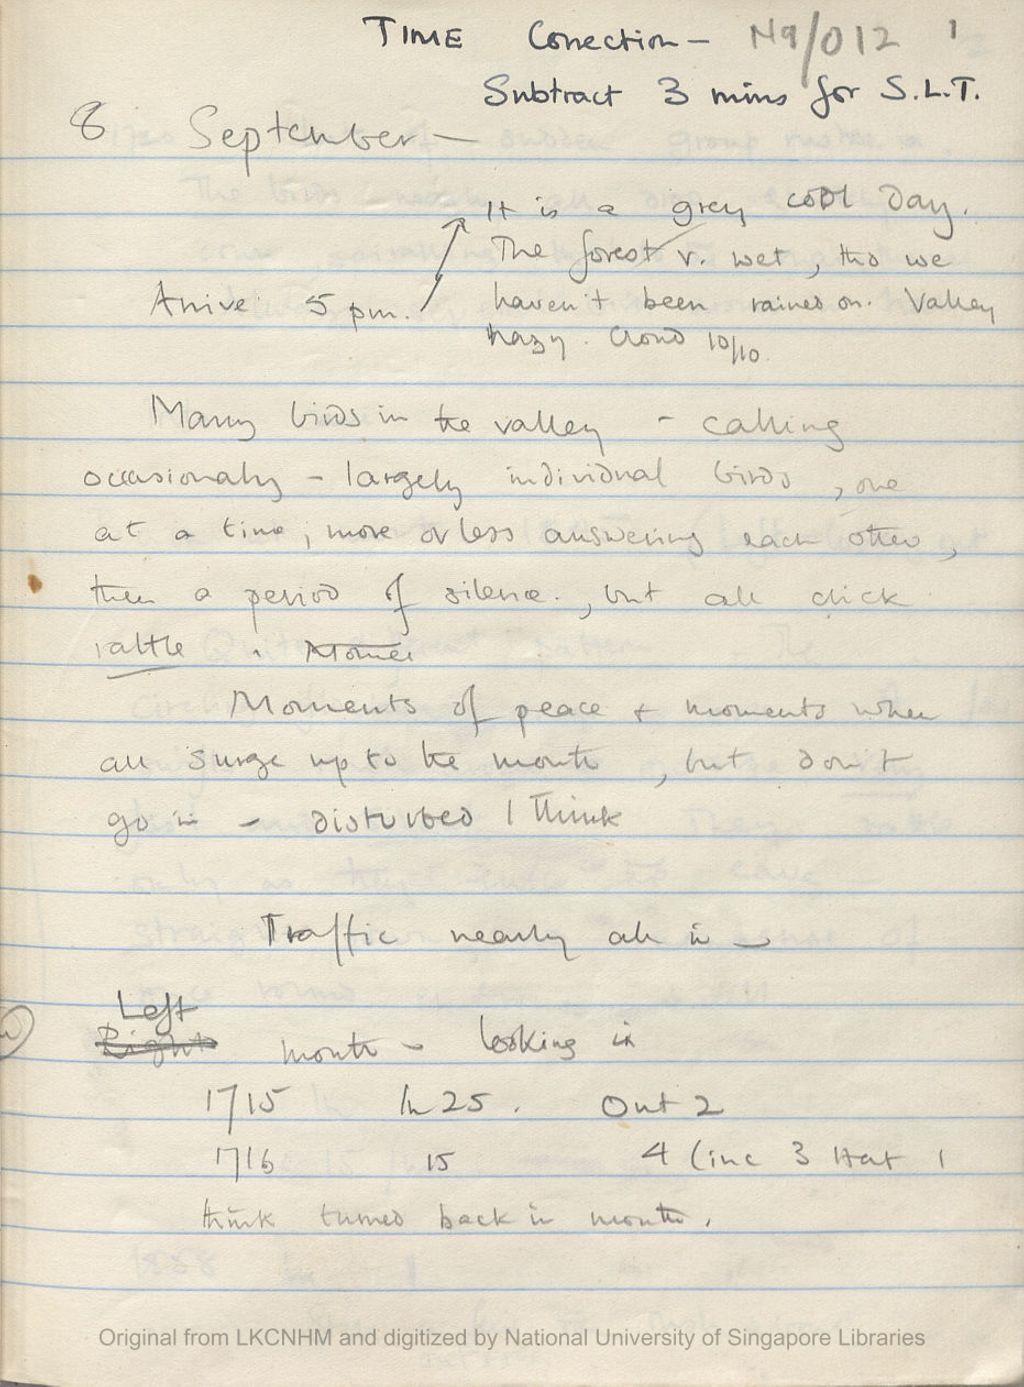 TIME Correction - N9/012 1
Subtract 3 mins for S.L.T.
8 September -
It is a grey cool day.
The forest v. wet, tho we
Arrive 5 pm. haven't been rained on. Valley
hazy. Cloud 10/10.
Many birds in the valley - calling
occasionally - largely individual birds, one
at a time, more or less answering each other,
then a period of silence., but all click
rattle.
Moments of peace + moments when
all surge up to the mouth, but don't
go in - disturbed I think
Traffic nearly all in -
Left
Right mouth - looking in
1715 In 25. Out 2
1716 15 4 (inc 3 that I
think turned back in mouth.
Original from LKCNHM and digitized by National University of Singapore Libraries